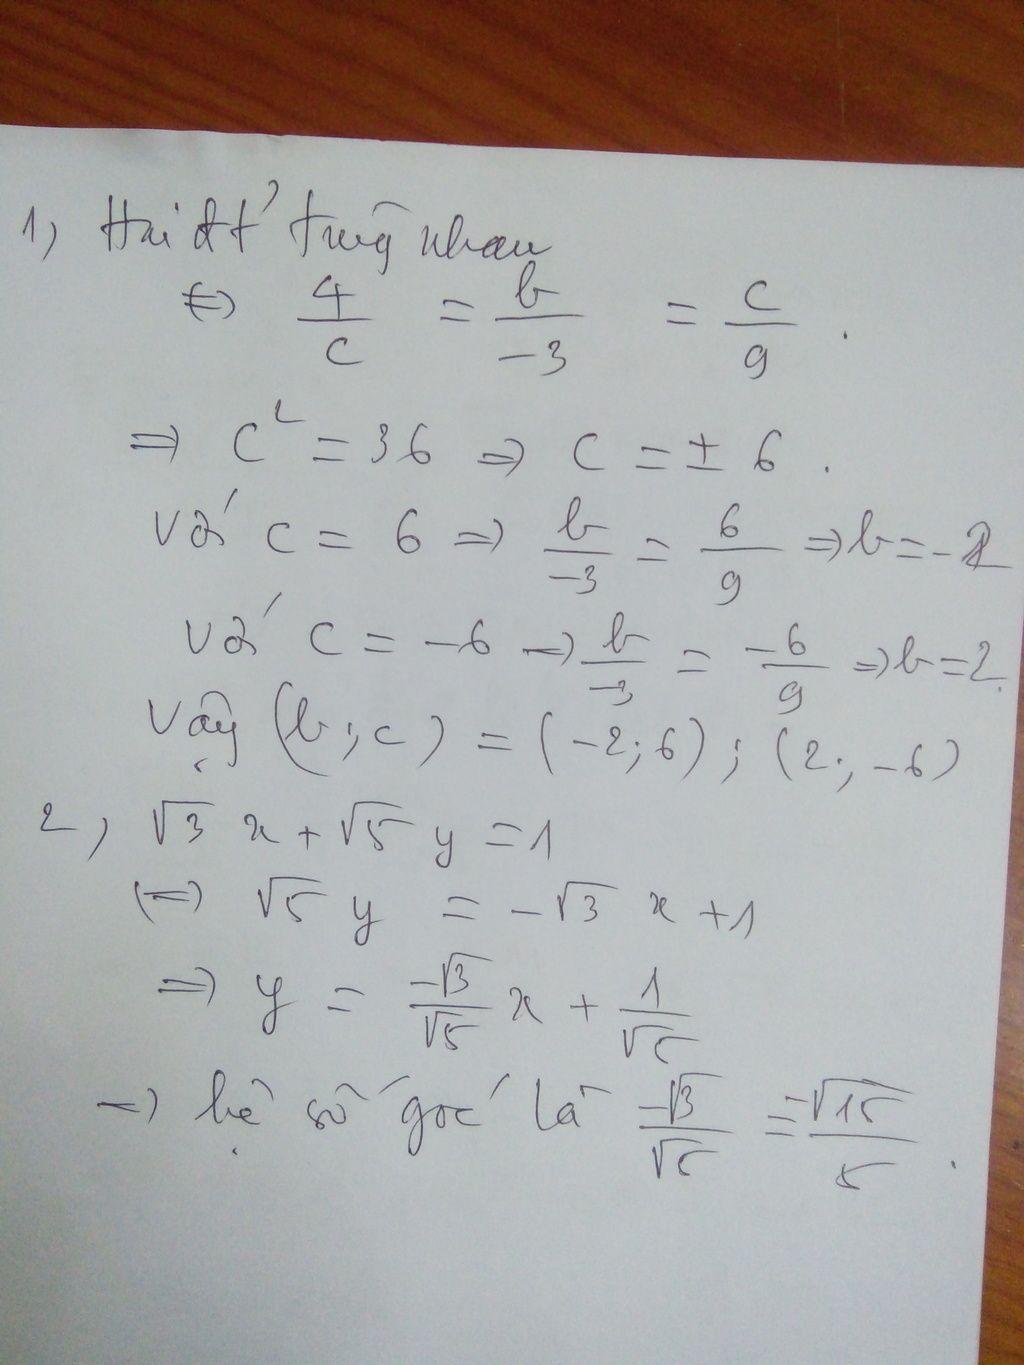 1, Hai đt' trùng nhau
⇔ 4/c = b/-3 = c/9 .
⇒ c² = 36 ⇒ c = ± 6 .
Với c = 6 ⇒ b/-3 = 6/9 ⇒ b = -2
Với c = -6 ⇒ b/-3 = -6/9 ⇒ b = 2.
Vậy (b ; c) = (-2; 6) ; (2; -6)
2, √3 x + √5 y = 1
⇔ √5 y = -√3 x + 1
⇒ y = -√3/√5 x + 1/√5
⇒ hệ số góc là -√3/√5 = -√15/5 .